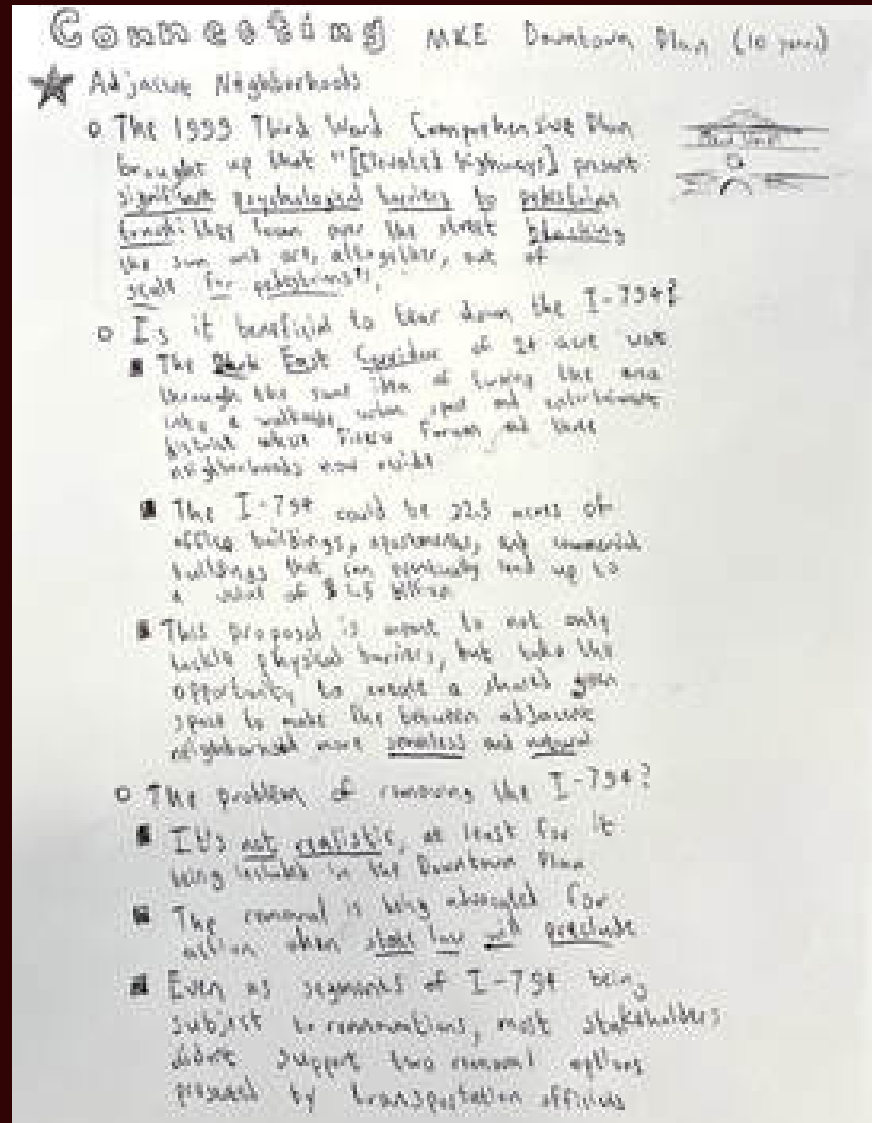 Connecting MKE Downtown Plan (10 years)
Adjacent Neighborhoods
The 1999 Third Ward Comprehensive Plan
brought up that "[Elevated highways] present
significant psychological barriers to pedestrian
they loom over the street blocking
the sun and are, altogether, out of
scale for pedestrians".
Is it beneficial to tear down the I-794?
The Park East Corridor of 24 acre was
through the same idea of turning the area
into a walkable, urban spot and entertainment
district where Fiserv Forum and three
neighborhoods now reside
The I-794 could be 32.5 acres of
office buildings, apartments, and commercial
buildings that can eventually lead up to
a value of $1.5 billion
This proposal is meant to not only
tackle physical barriers, but take the
opportunity to create a shared
space to make the between adjacent
neighborhood more seamless and natural
The problem of removing the I-794?
It's not realistic, at least for it
being included in the Downtown Plan
The removal is being advocated for
action when state law will preclude
Even as segments of I-794 being
subject to renovations, most stakeholders
didn't support two removal options
present by transportation officials